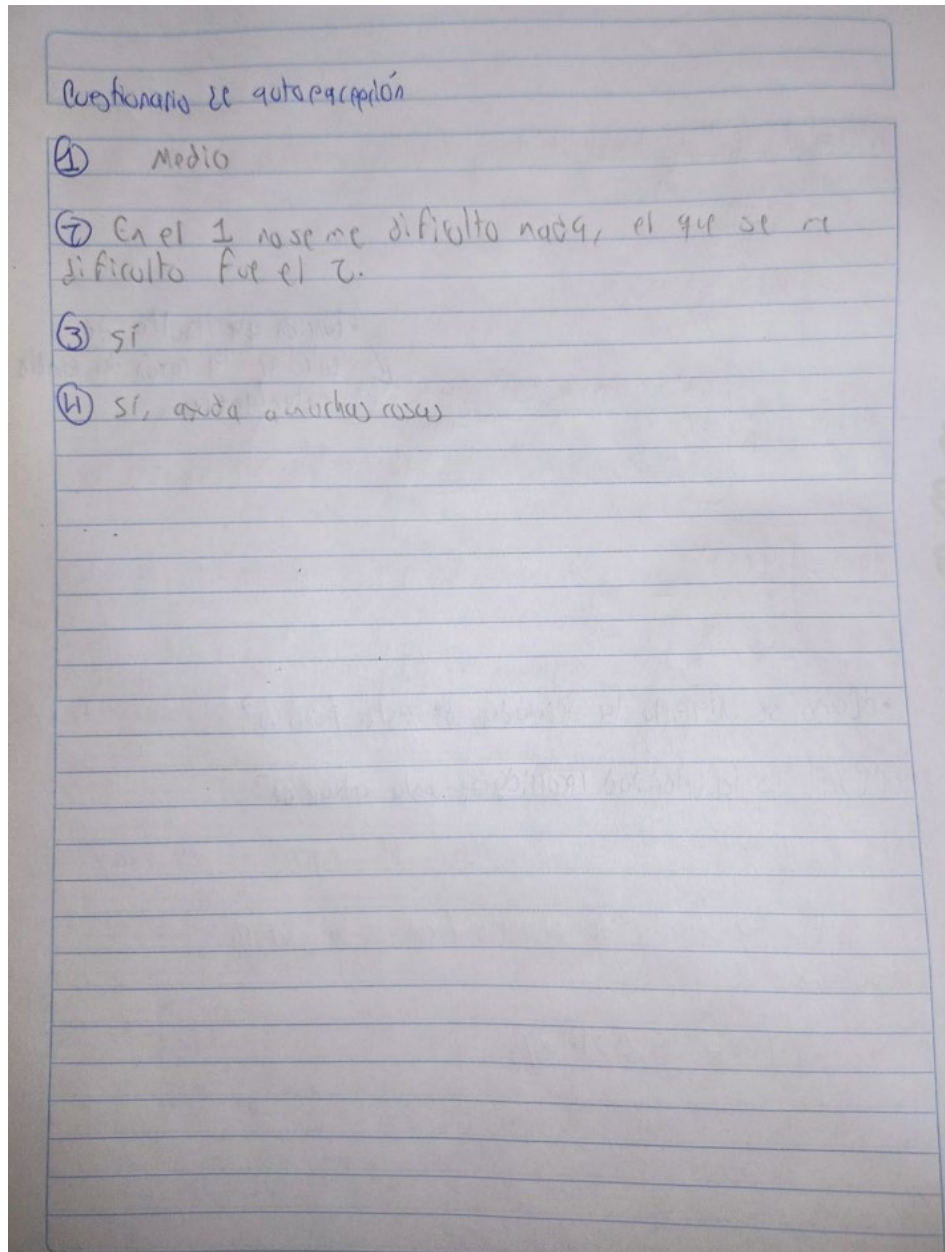 Cuestionario de autopercepción
① Medio
② En el 1 no se me dificulto nada, el que se me
dificulto fue el 2.
③ sí
④ sí, ayuda a muchas cosas